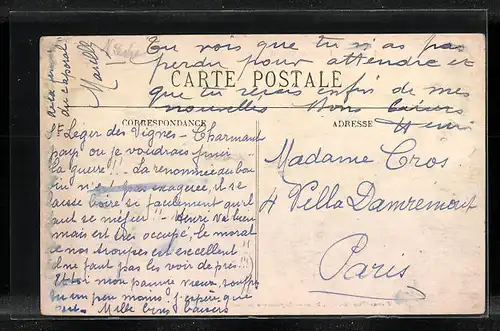 Tu vois que tu n'as pas
perdu pour attendre et
que tu reçois enfin de mes
nouvelles Bons baisers
Henri
CARTE POSTALE
CORRESPONDANCE
ADRESSE
du caporal
St Léger des Vignes - Charmant
pays ou je voudrais finir
la guerre!! - La renommée du
n'est pas exagérée, il se
laisse boire si facilement qu'il
faut se méfier!! - Henri va bien
mais est très occupé, le moral
de nos troupes est excellent
(il ne faut pas les voir de près!!!)
Et toi mon pauvre vieux,
tu un peu moins j'espère que
Mille bons baisers
Madame Cros
4 Villa Damrémont
Paris